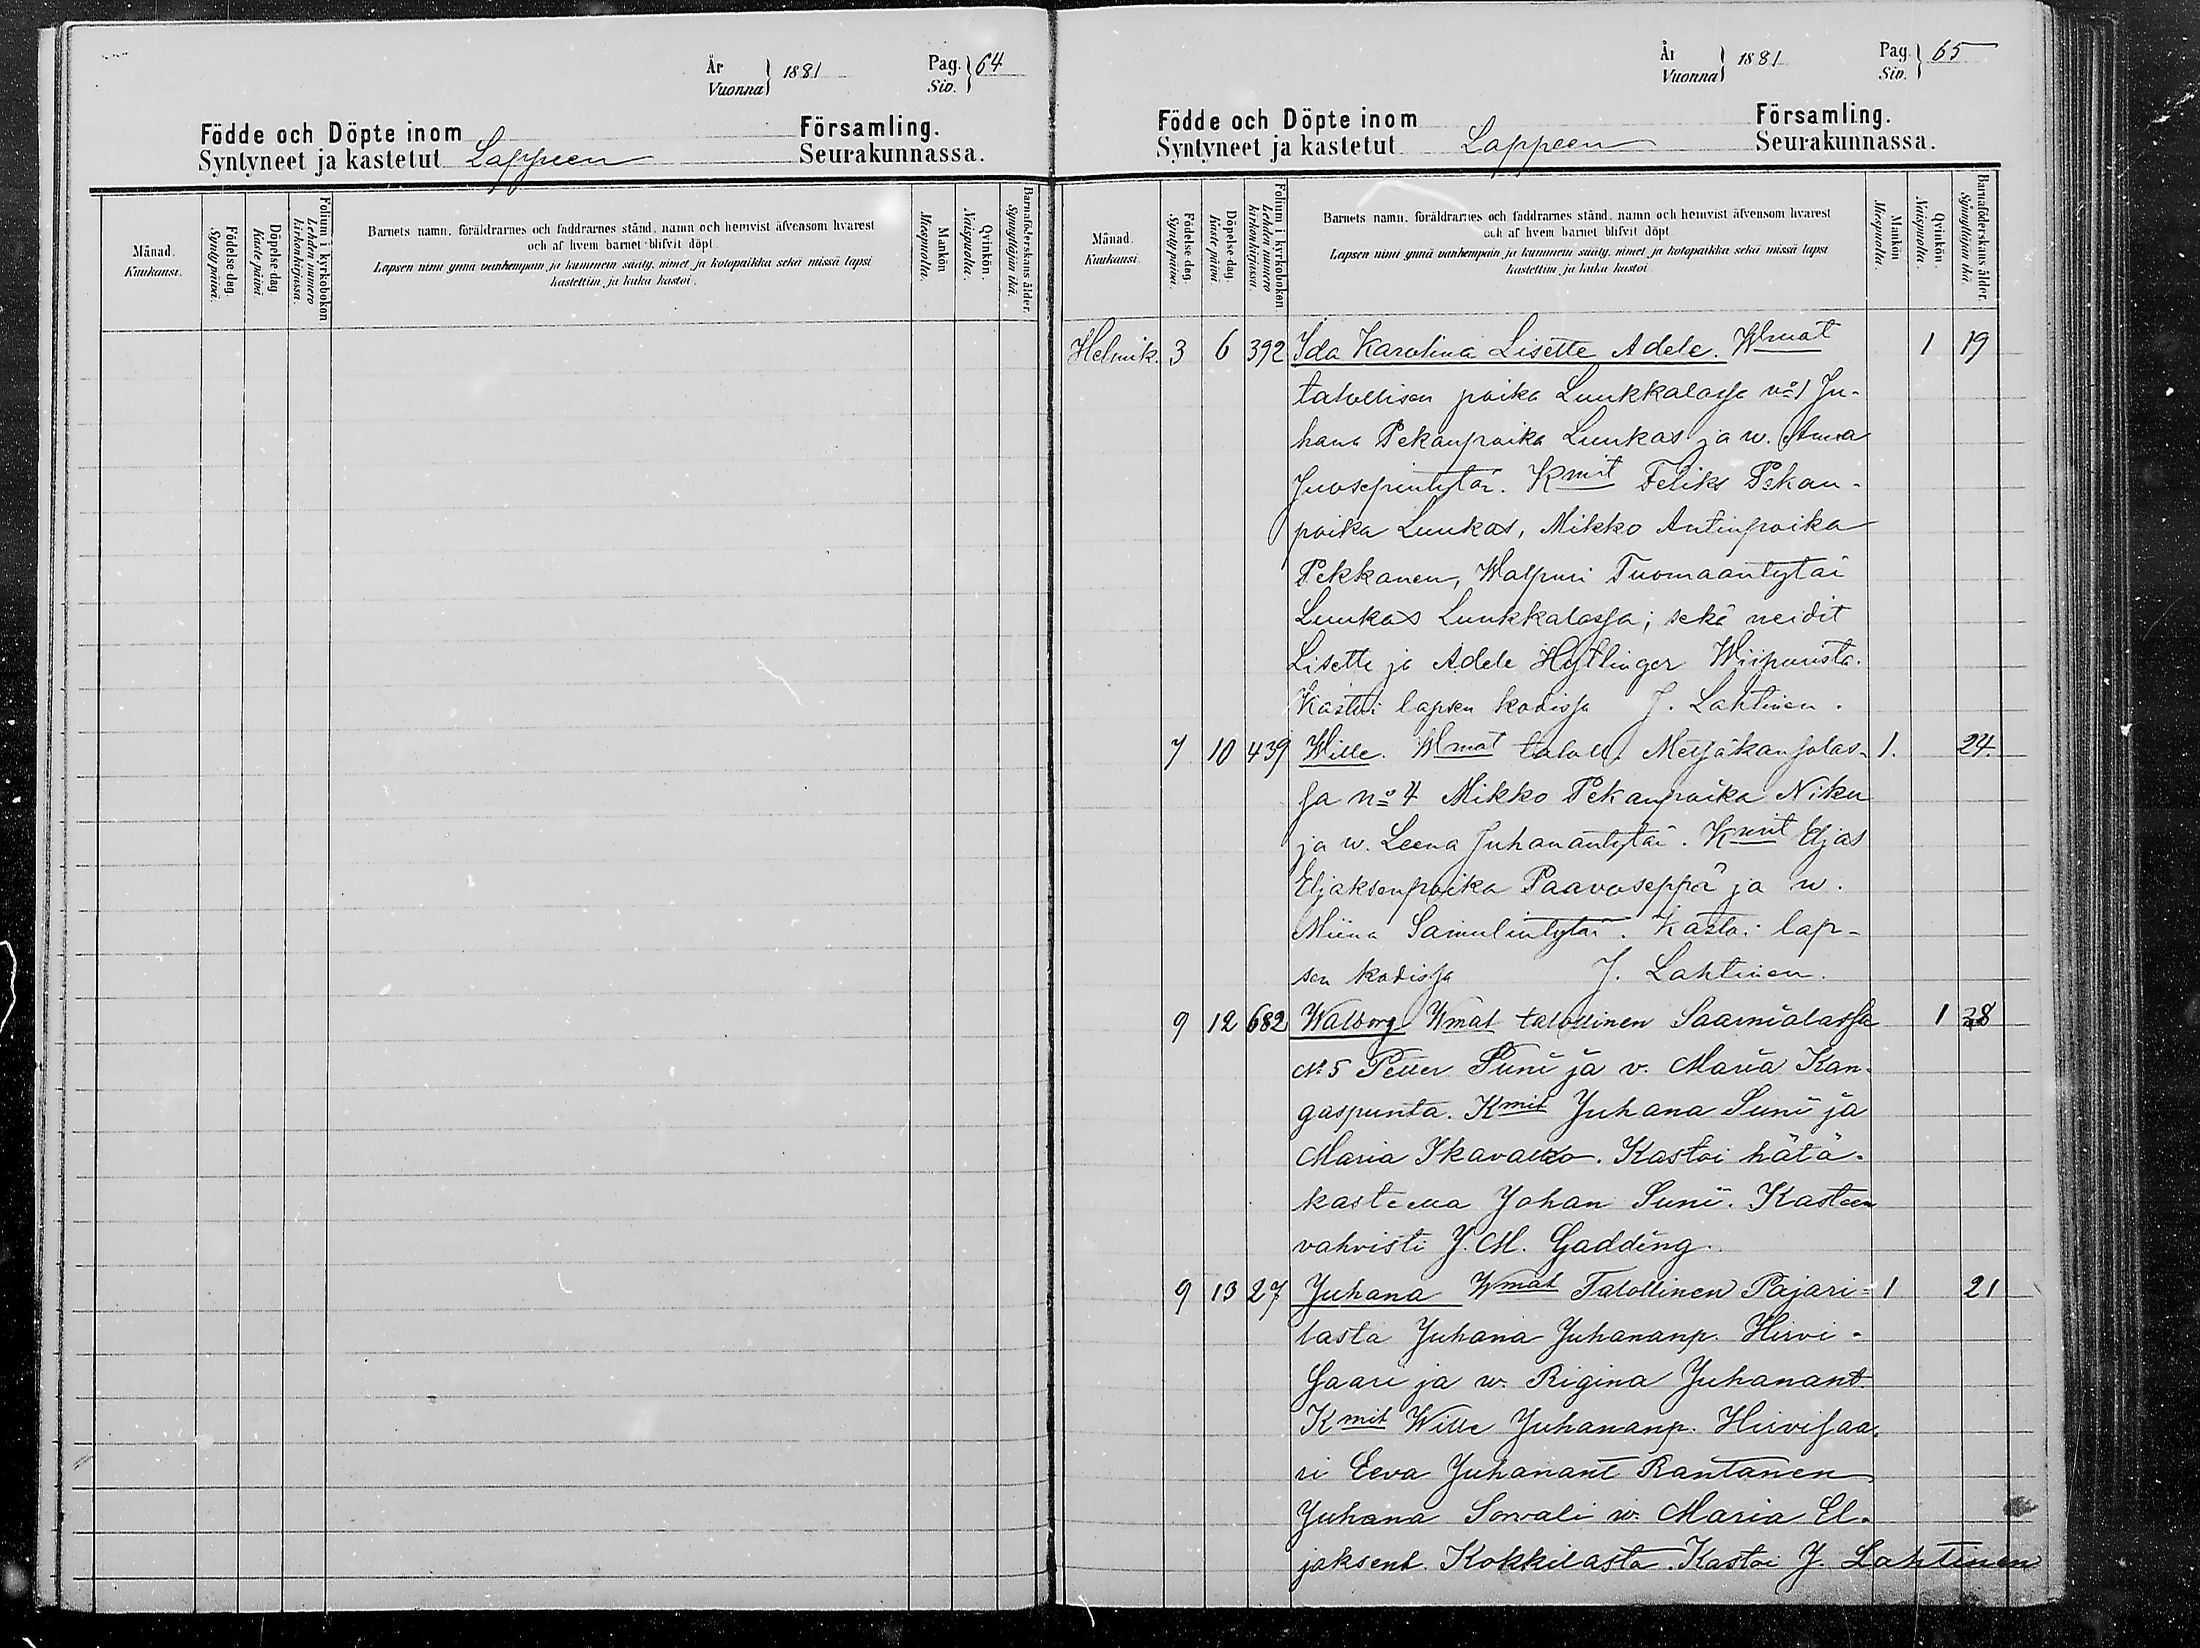 År
Vuonna } 1881 Pag.
Siv. } 64
Födde och Döpte inom Församling.
Syntyneet ja kastetut Lappeen Seurakunnassa.
Månad. Kuukausi.
Födelsedag. Syntypäivä.
Döpelsedag Kastepäivä
Folium i kyrkoboken Lehden numero kirkonkirjassa.
Barnets namn, föräldrarnes och faddrarnes stånd, namn och hemvist äfvensom hvarest
och af hvem barnet blifvit döpt.
Lapsen nimi ynnä vanhempain ja kummein sääty, nimet ja kotopaikka sekä missä lapsi
kastettiin ja kuka kastoi.
Mankön Miespuolia.
Qvinkön. Naispuolia.
Barnaföderskans ålder. Synnyttäjän ikä.
År
Vuonna } 1881 Pag.
Siv. } 65
Födde och Döpte inom Församling.
Syntyneet ja kastetut Lappeen Seurakunnassa.
Månad. Kuukausi
Födelsedag. Syntypäivä.
Döpelsedag. Kastepäivä
Folium i kyrkoboken Lehden numero kirkonkirjassa.
Barnets namn, föräldrarnes och faddrarnes stånd, namn och hemvist äfvensom hvarest
och af hvem barnet blifvit döpt
Lapsen nimi ynnä vanhempain ja kummein sääty, nimet ja kotopaikka sekä missä lapsi
kastettiin ja kuka kastoi
Mankön Miespuolia.
Qvinkön. Naispuolia.
Barnaföderskans ålder. Synnyttäjän ikä.
Helmik. 3 6 392 Ida Karolina Lisette Adele. Wmat 1 19
talollisen poika Luukkalassa No 1 Ju-
hana Pekanpoika Luukas ja w. Anna
Juosepintytär. Kmit Feliks Pekan-
poika Luukas, Mikko Antinpoika
Pekkanen, Walpuri Tuomaantytär
Luukas Luukkalassa; sekä neidit
Lisette ja Adele Wiipurista.
Kastoi lapsen kodissa J. Lahtinen.
7 10 439 Wille. Wmat taloll. Metsäkansolas- 1. 24.
sa No 4 Mikko Pekanpoika Niku
ja w. Leena Juhanantytär. Kmit Eljas
Eljaksenpoika Paavoseppä ja w.
Miina Samulintytär. Kastoi lap-
sen kodissa J. Lahtinen.
9 12 682 Walborg Wmat talollinen Saamialassa 1 38
No 5 Petter Suni ja v. Maria Kan-
gaspunta. Kmit Juhana Suni ja
Maria Ikavalko. Kastoi hätä-
kasteella Johan Suni. Kasteen
vahvisti J. M. Gadding.
9 13 27 Juhana Wmat Talollinen Pajari= 1 21
lasta Juhana Juhananp. Hirvi-
saari ja w. Rigina Juhanant.
Kmit Wille Juhananp. Hirvisaa-
ri Eeva Juhanant Rantanen
Juhana Sorvali w. Maria El-
jaksent. Kokkilasta. Kastoi J. Lahtinen